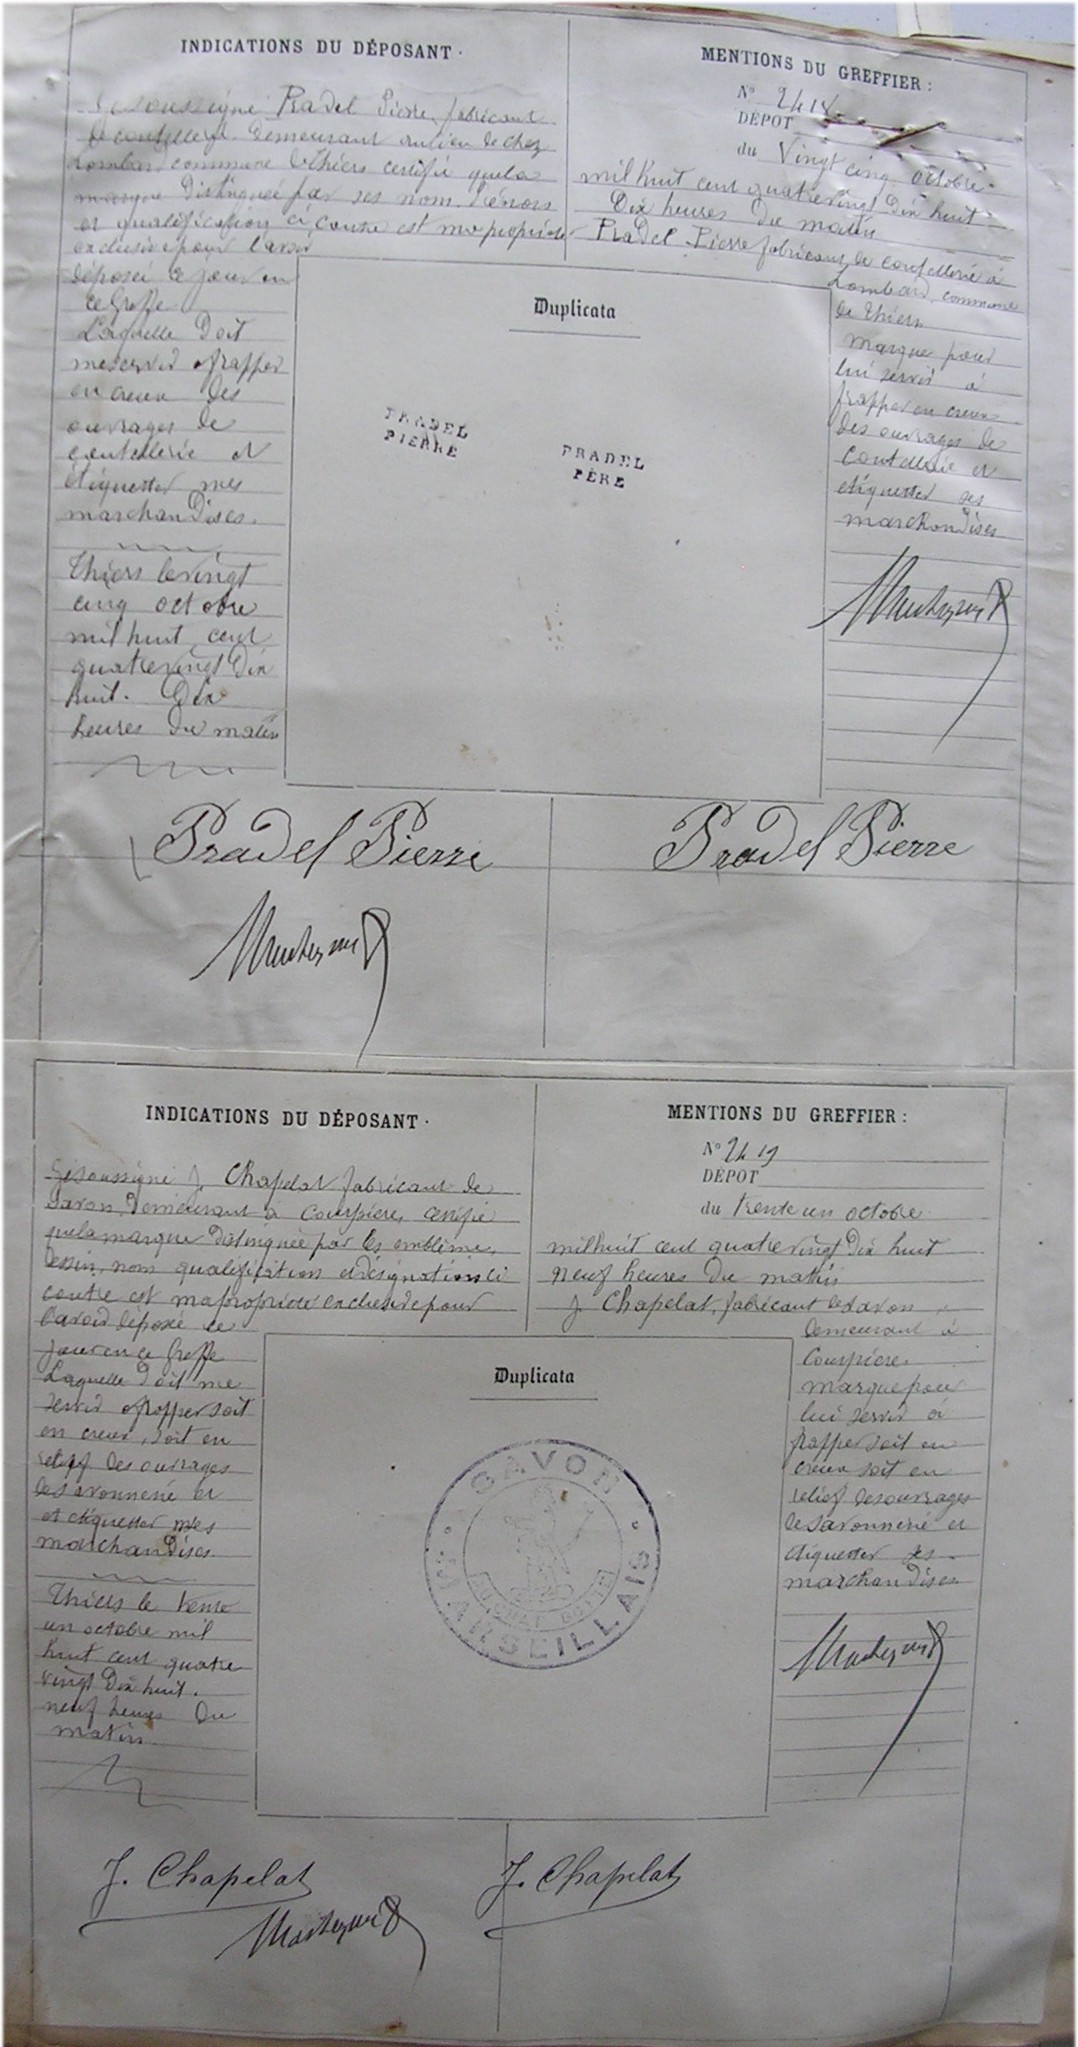 INDICATIONS DU DÉPOSANT.
Je soussigné Pradel Pierre, fabricant
de coutellerie demeurant au lieu de chez
Lombard commune de Thiers certifie que la
marque distinguée par ses nom, prénom
et qualification ci contre est ma propriété
exclusive pour l'avoir
déposée ce jour en
ce Greffe
Laquelle doit
me servir à frapper
en creux des
ouvrages de
coutellerie et
étiquetter mes
marchandises.
Thiers le vingt
cinq octobre
mil huit cent
quatre vingt dix
huit. Dix
heures du matin
MENTIONS DU GREFFIER :
N° 2418
DÉPOT
du Vingt cinq octobre
mil huit cent quatre vingt dix huit
Dix heures du matin
Pradel Pierre fabricant de coutellerie à
Lombard, commune
de Thiers
marque pour
lui servir à
frapper en creux
des ouvrages de
coutellerie et
étiquetter ses
marchandises
Duplicata
PRADEL
PIERRE
PRADEL
PÈRE
Pradel Pierre
Pradel Pierre
INDICATIONS DU DÉPOSANT.
Je soussigné J. Chapelat fabricant de
savon, demeurant à Courpière, certifie
que la marque distinguée par les emblème,
dessin, nom qualification et désignation ci
contre est ma propriété exclusive pour
l'avoir déposée ce
jour en ce Greffe
Laquelle doit me
servir à frapper soit
en creux, soit en
relief des ouvrages
de savonnerie et
et étiquetter mes
marchandises.
Thiers le trente
un octobre mil
huit cent quatre
vingt dix huit.
neuf heures du
matin
MENTIONS DU GREFFIER :
N° 2419
DÉPOT
du trente un octobre
mil huit cent quatre vingt dix huit
neuf heures du matin
J. Chapelat, fabricant de savon
demeurant à
Courpière.
marque pour
lui servir à
frapper soit en
creux soit en
relief des ouvrages
de savonnerie et
étiquetter ses
marchandises.
Duplicata
SAVON
AU CHAT BOTTÉ
MARSEILLAIS
J. Chapelat
J. Chapelat